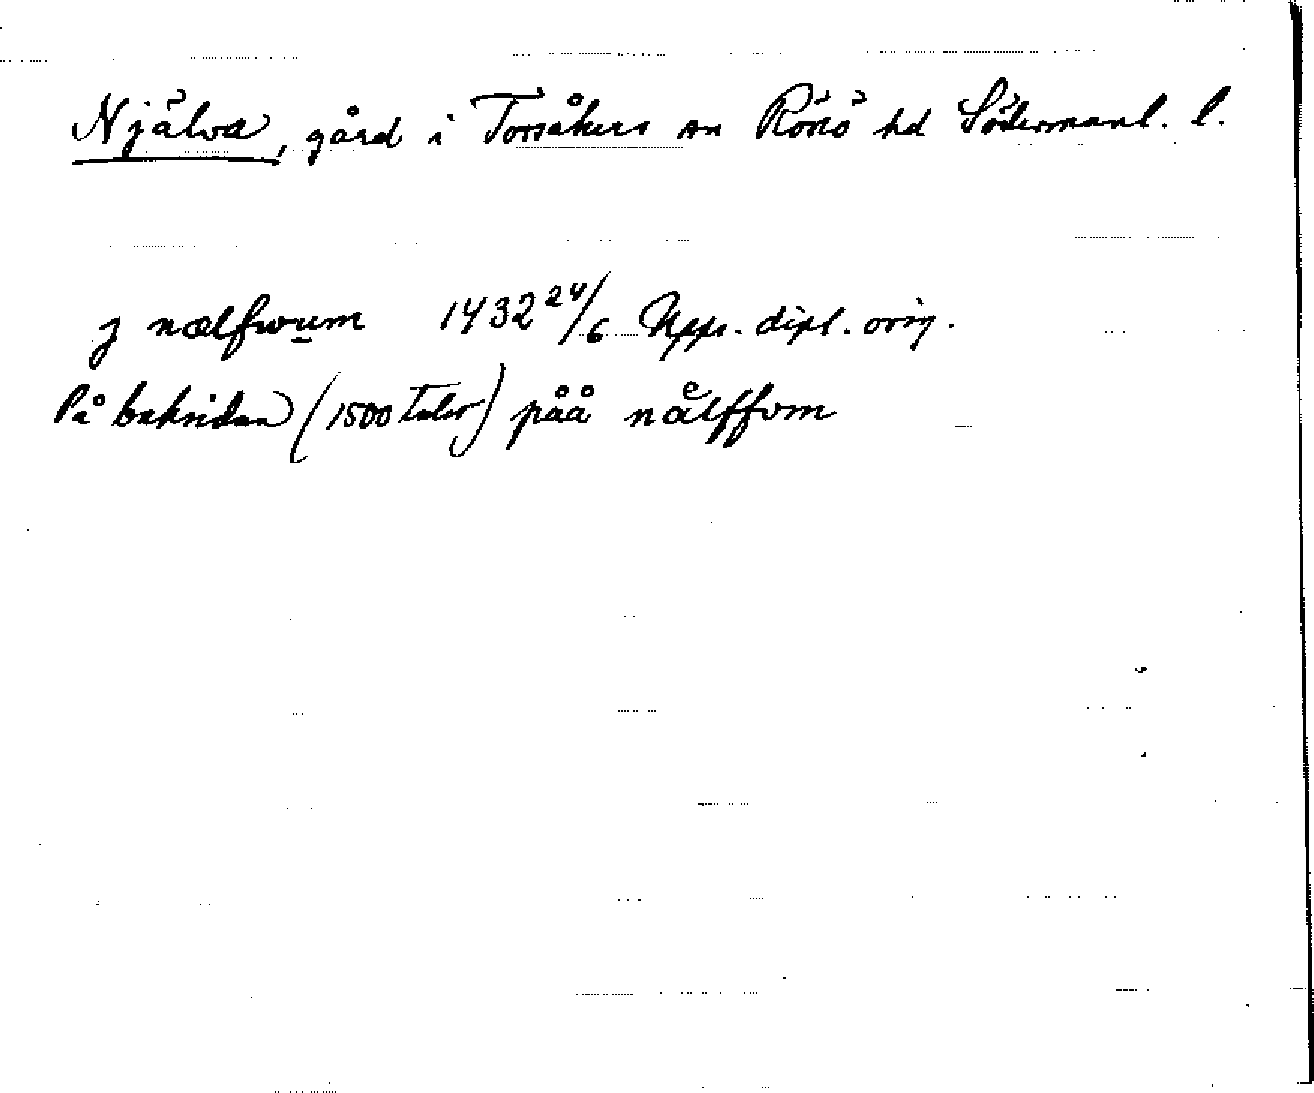 Njälva, gård i Torsåkers sn Rönö hd Södermanl. l.
j nælfwum 1432 24/6 Upps. dipl. orig.
På baksidan (1500 talet) påå nålffom